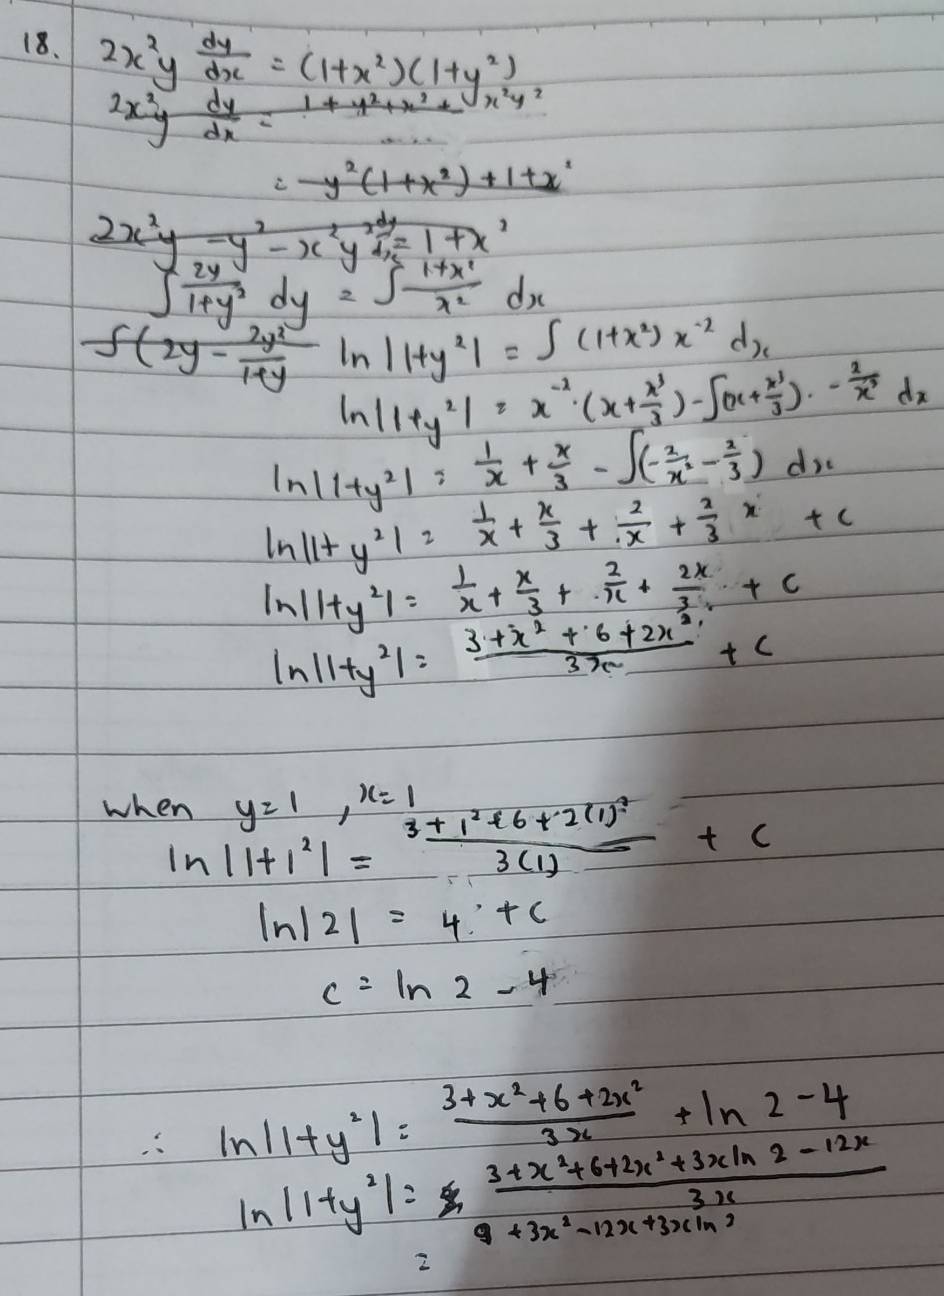 18. 2x²y dy/dx = (1+x²)(1+y²)
2x²y dy/dx = 1 + y² + x² + x²y²
= y²(1+x²) + 1+x²
2x²y - y² - x²y² dy/dx = 1+x²
∫ 2y/(1+y²) dy = ∫ (1+x²)/x² dx
∫(2y - 2y²/(1+y) ln|1+y²| = ∫ (1+x²) x⁻² dx
ln|1+y²| = x⁻² · (x + x³/3) - ∫(x + x³/3) · -2/x³ dx
ln|1+y²| = 1/x + x/3 - ∫(-2/x² - 2/3) dx
ln|1+y²| = 1/x + x/3 + 2/x + 2/3 x + c
ln|1+y²| = 1/x + x/3 + 2/x + 2x/3 + c
ln|1+y²| = (3+x²+6+2x²)/3x + c
when y=1, x=1
ln|1+1²| = (3+1²+6+2(1)²)/3(1) + c
ln|2| = 4 + c
c = ln 2 - 4
∴ ln|1+y²| = (3+x²+6+2x²)/3x + ln 2 - 4
ln|1+y²| = (3+x²+6+2x²+3x ln 2 - 12x)/3x
= 9 + 3x² - 12x + 3x ln 2